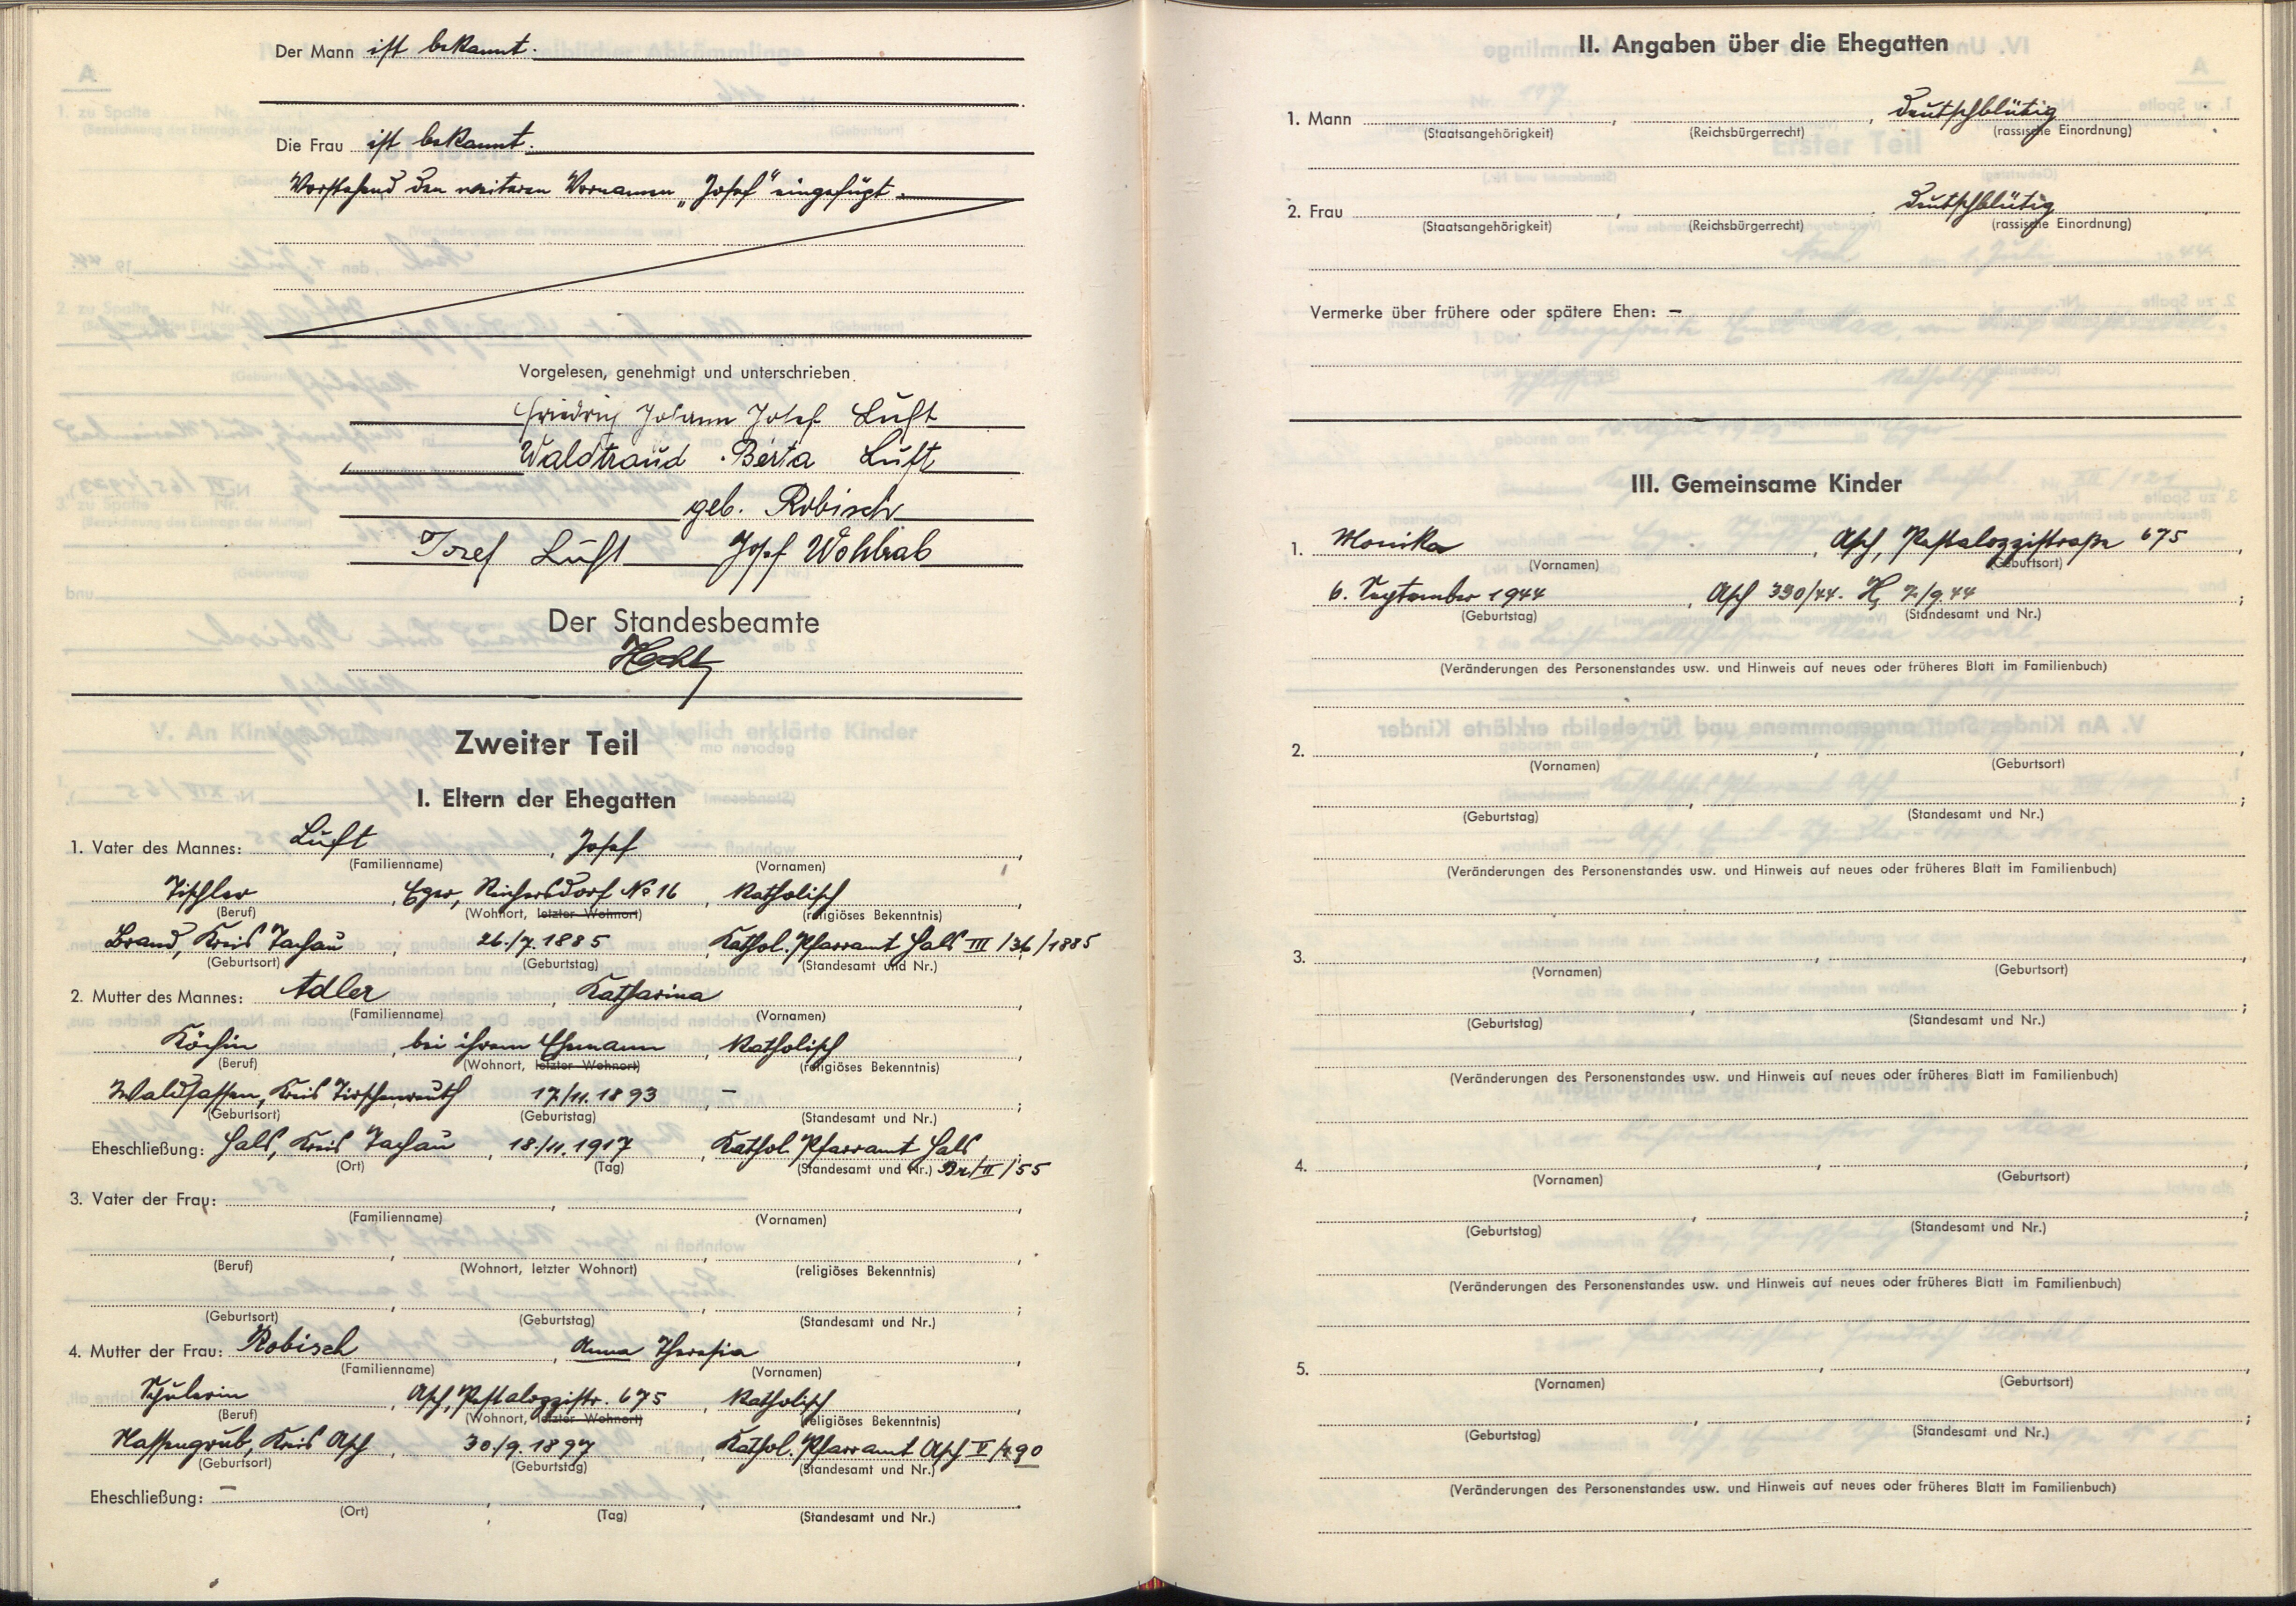 Der Mann ist bekannt.
Die Frau ist bekannt.
Vorstehend den weiteren Vornamen „Josef“ eingefügt.
Vorgelesen, genehmigt und unterschrieben
Friedrich Johann Josef Luft
Waldtraud Berta Luft
geb. Robisch
Josef Luft Josef Wohlrab
Der Standesbeamte
Zweiter Teil
I. Eltern der Ehegatten
1. Vater des Mannes: Luft, Josef
(Familienname) (Vornamen)
Tischler, Eger, Reichersdorf No 16, katholisch,
(Beruf) (Wohnort, letzter Wohnort) (religiöses Bekenntnis)
Brand, Kreis Tachau, 26./7. 1885, Kathol. Pfarramt Hals III/36/1885
(Geburtsort) (Geburtstag) (Standesamt und Nr.)
2. Mutter des Mannes: Adler, Katharina,
(Familienname) (Vornamen)
Köchin, bei ihrem Ehemann, katholisch,
(Beruf) (Wohnort, letzter Wohnort) (religiöses Bekenntnis)
Waldsassen, Kreis Tirschenreuth, 17./11. 1893, – ;
(Geburtsort) (Geburtstag) (Standesamt und Nr.)
Eheschließung: Hals, Kreis Tachau, 18./11. 1917, Kathol Pfarramt Hals
(Ort) (Tag) (Standesamt und Nr.) Br./II/55
3. Vater der Frau:
(Familienname) (Vornamen)
(Beruf) (Wohnort, letzter Wohnort) (religiöses Bekenntnis)
(Geburtsort) (Geburtstag) (Standesamt und Nr.)
4. Mutter der Frau: Robisch, Anna Theresia,
(Familienname) (Vornamen)
Asch, Pestalozzistr. 675, katholisch,
(Beruf) (Wohnort, letzter Wohnort) (religiöses Bekenntnis)
Nassengrub, Kreis Asch, 30./9. 1897, Kathol. Pfarramt Asch V/290
(Geburtsort) (Geburtstag) (Standesamt und Nr.)
Eheschließung: –
(Ort) (Tag) (Standesamt und Nr.)
II. Angaben über die Ehegatten
1. Mann , , deutschblütig
(Staatsangehörigkeit) (Reichsbürgerrecht) (rassische Einordnung)
2. Frau , . deutschblütig
(Staatsangehörigkeit) (Reichsbürgerrecht) (rassische Einordnung)
Vermerke über frühere oder spätere Ehen: –
III. Gemeinsame Kinder
1. Monika, Asch, Pestalozzistraße 675,
(Vornamen) (Geburtsort)
6. September 1944, Asch 390/44. H, 7./9. 44 ;
(Geburtstag) (Standesamt und Nr.)
(Veränderungen des Personenstandes usw. und Hinweis auf neues oder früheres Blatt im Familienbuch)
2.
(Vornamen) (Geburtsort)
(Geburtstag) (Standesamt und Nr.)
(Veränderungen des Personenstandes usw. und Hinweis auf neues oder früheres Blatt im Familienbuch)
3.
(Vornamen) (Geburtsort)
(Geburtstag) (Standesamt und Nr.)
(Veränderungen des Personenstandes usw. und Hinweis auf neues oder früheres Blatt im Familienbuch)
4.
(Vornamen) (Geburtsort)
(Geburtstag) (Standesamt und Nr.)
(Veränderungen des Personenstandes usw. und Hinweis auf neues oder früheres Blatt im Familienbuch)
5.
(Vornamen) (Geburtsort)
(Geburtstag) (Standesamt und Nr.)
(Veränderungen des Personenstandes usw. und Hinweis auf neues oder früheres Blatt im Familienbuch)